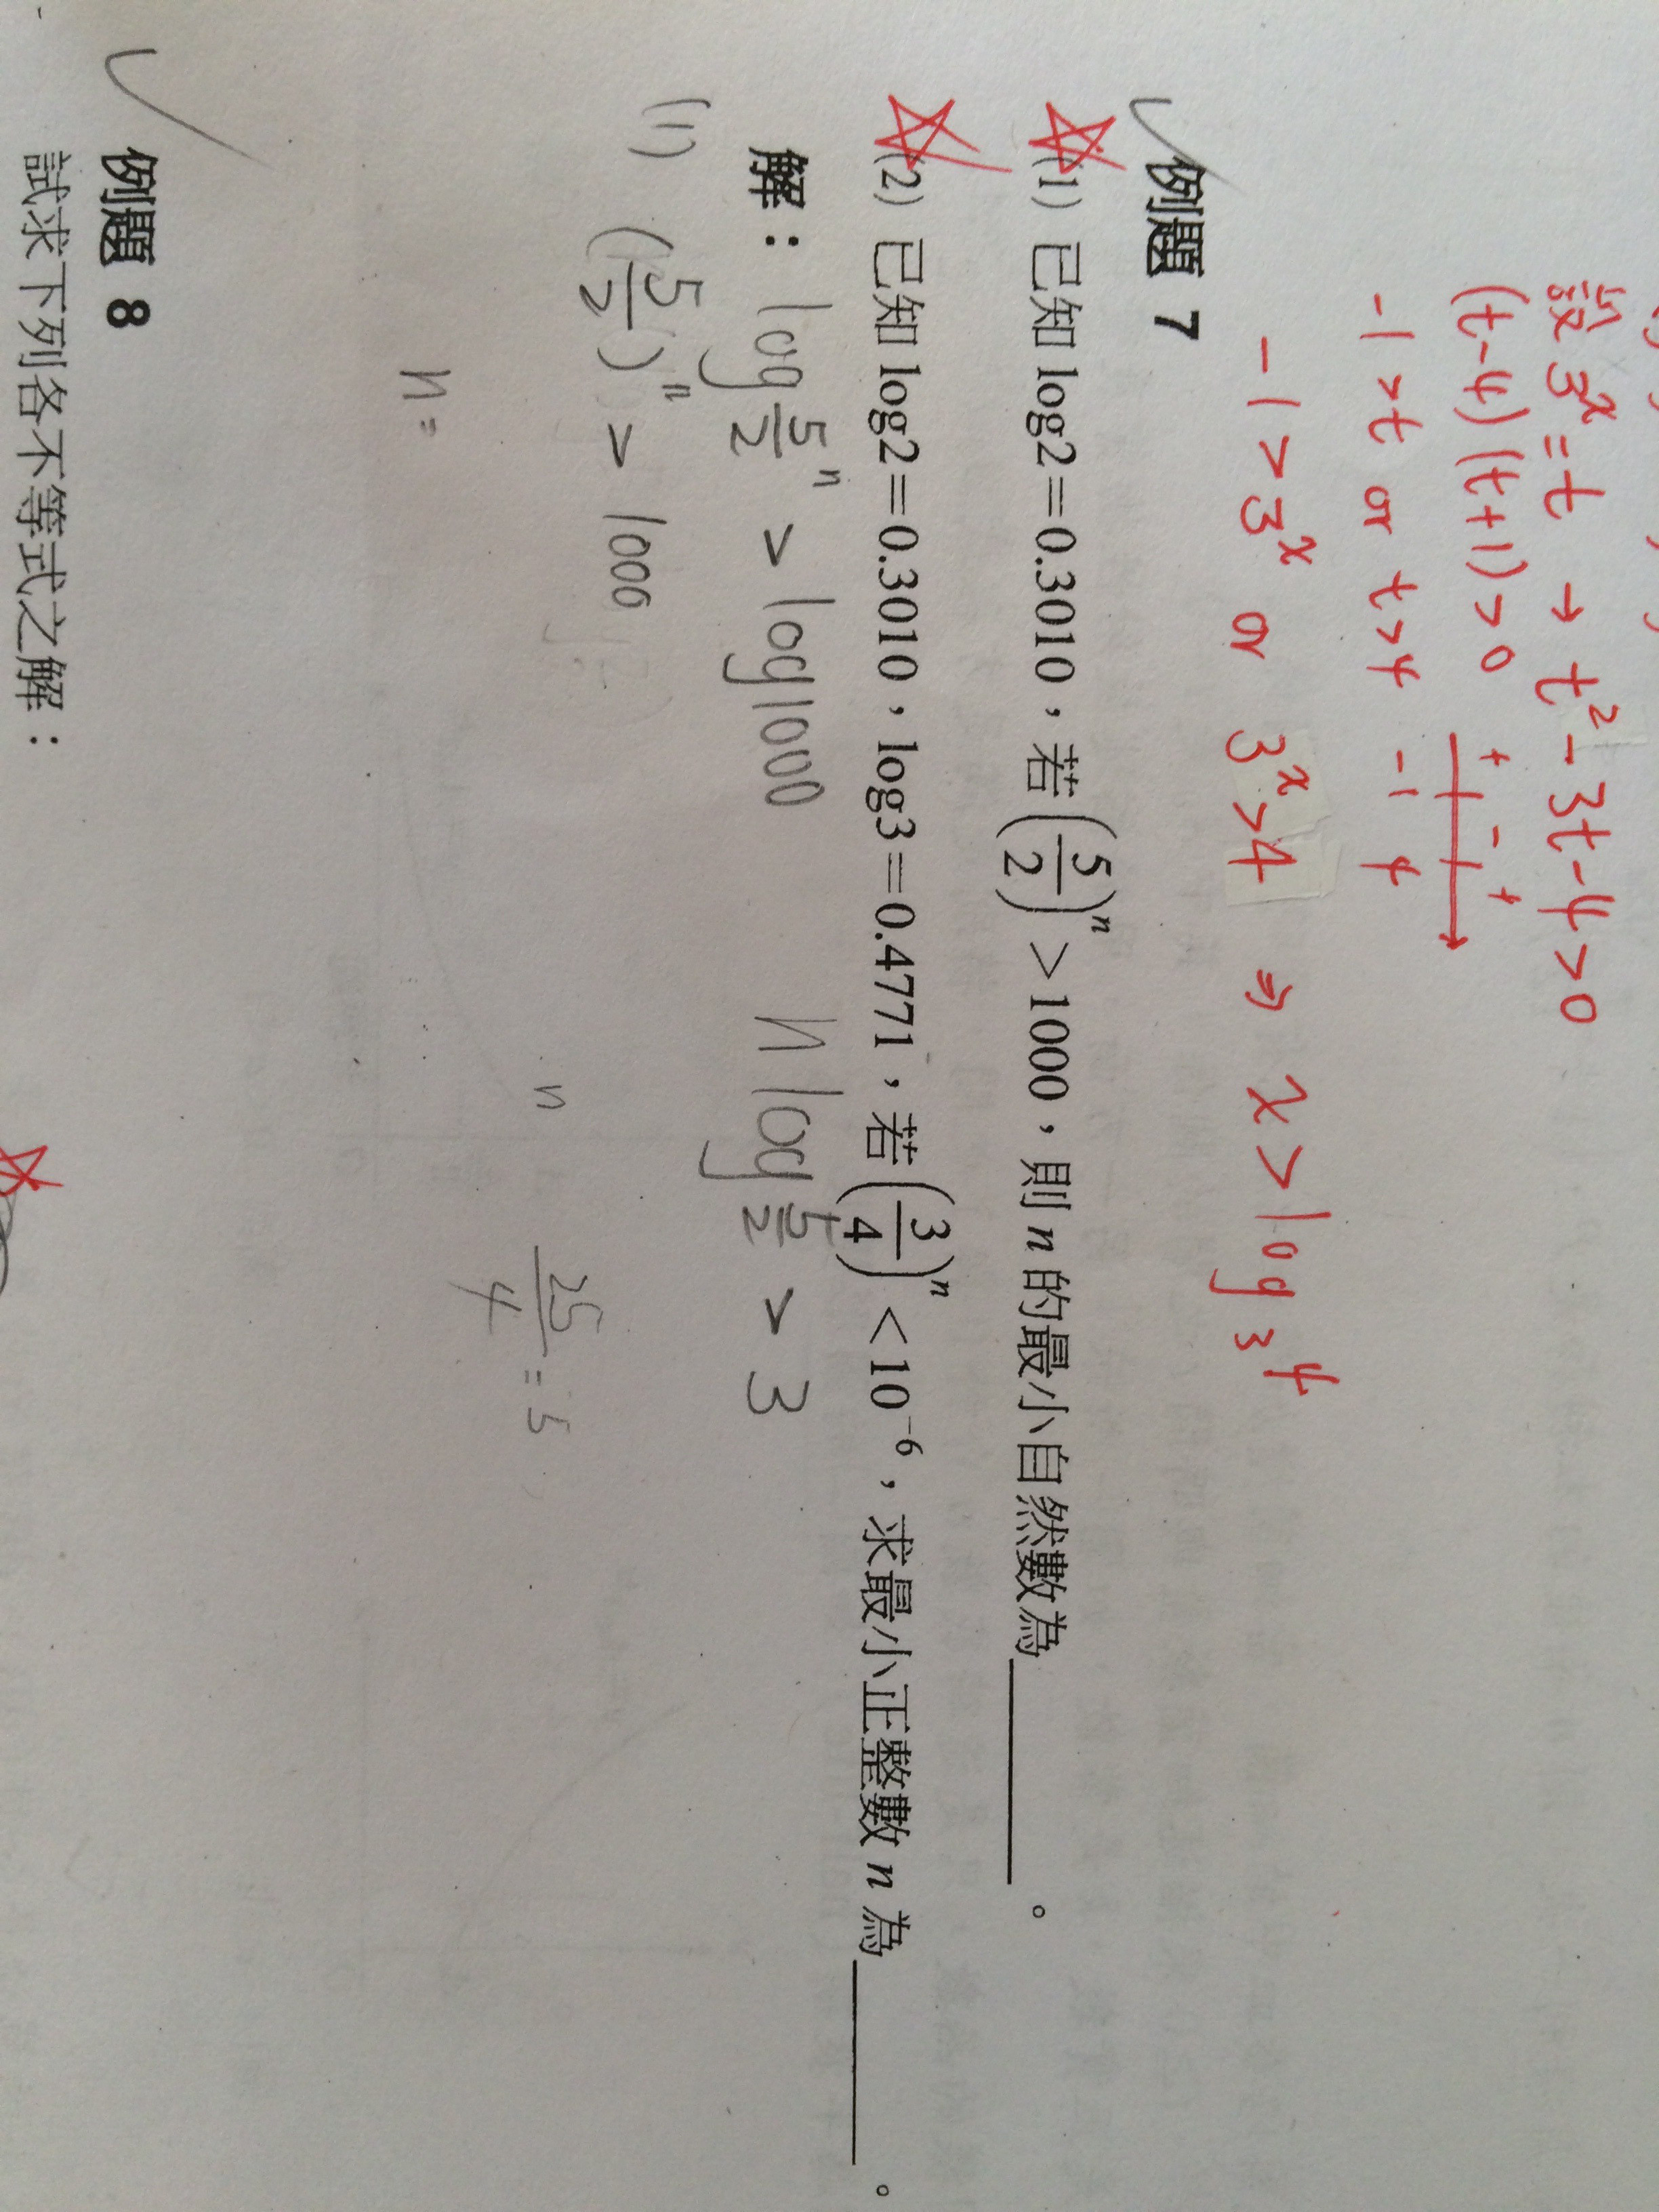 設 3ˣ = t → t² - 3t - 4 > 0
(t-4)(t+1) > 0
+ - +
-1 > t or t > 4 -1 4
-1 > 3ˣ or 3ˣ > 4 ⇒ x > log₃4
例題 7
(1) 已知 log2=0.3010，若(5/2)ⁿ>1000，則 n 的最小自然數為______。
(2) 已知 log2=0.3010，log3=0.4771，若(3/4)ⁿ<10⁻⁶，求最小正整數 n 為______。
解： log 5/2ⁿ > log1000 n log 5/2 > 3
(1) (5/2)ⁿ > 1000
n 25/4 = 5
n =
例題 8
試求下列各不等式之解：